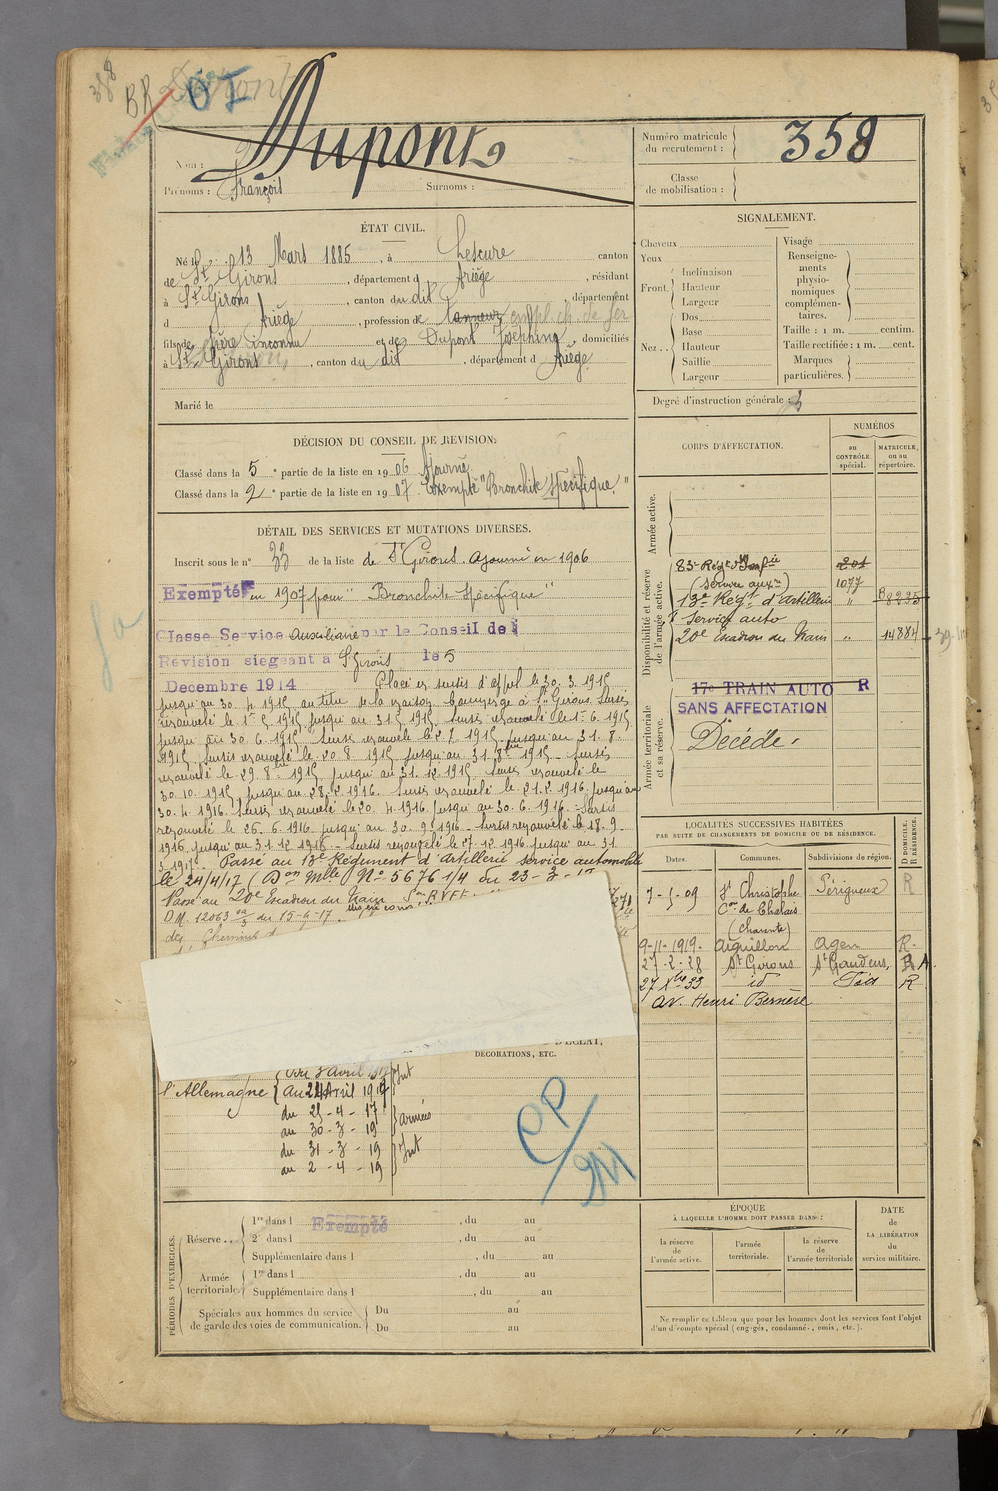 358
BR
OI
Dupont
Nom :
Prénoms : François Surnoms :
Numéro matricule du recrutement : 358
Classe de mobilisation :
ÉTAT CIVIL.
Né le 13 Mars 1885, à Lescure canton
de St Girons, département d Ariège, résidant
à St Girons, canton du dit, département
d Ariège, profession de tanneur empl. ch. de fer
fils de Père inconnu et de Dupont Joséphine domiciliés
à St Girons, canton du dit, département d Ariège
Marié le
DÉCISION DU CONSEIL DE REVISION.
Classé dans la 5e partie de la liste en 1906 Ajourné
Classé dans la 2e partie de la liste en 1907. Exempté "Bronchite spécifique"
DÉTAIL DES SERVICES ET MUTATIONS DIVERSES.
Inscrit sous le n° 33 de la liste de St Girons. Ajourné en 1906
Exempté en 1907 pour "Bronchite spécifique"
Classe Service Auxiliaire par le Conseil de
Revision siegeant a St Girons le 5
Decembre 1914 Placé en sursis d'appel le 30.3.1915
jusqu'au 30.4.1915 au titre de la maison à St Girons. Sursis
renouvelé le 1er 5 1915 jusqu'au 31 5 1915. Sursis renouvelé le 1er 6 1915
jusqu'au 30.6.1915. Sursis renouvelé le 2.7.1915 jusqu'au 31.8.
1915. Sursis renouvelé le 20.8.1915 jusqu'au 31.8bre 1915. Sursis
renouvelé le 29.8bre 1915 jusqu'au 31.12.1915. Sursis renouvelé le
30.10.1915 jusqu'au 28.2.1916. Sursis renouvelé le 21.2.1916 jusqu'au
30.4.1916. Sursis renouvelé le 20.4.1916 jusqu'au 30.6.1916. Sursis
renouvelé le 26.6.1916 jusqu'au 30.9.1916. Sursis renouvelé le 18.9.
1916 jusqu'au 31.12.1916. Sursis renouvelé le 27.12.1916 jusqu'au 31.
3.1917. Passé au 13e Régiment d'artillerie service automobile
le 24/4/17 (Don Mlle No 5676 1/4 du 23-3-17
Passé au 20e Escadron du Train
D.M. 12063 du 15-4-17.
des Chemins d
D'ÉCLAT,
DÉCORATIONS, ETC.
l'Allemagne
au 24 Avril 1917 } Int
du 25-4-17
au 30-3-19 } armées
du 31-3-19
au 2-4-19 } Int
SIGNALEMENT.
Cheveux
Yeux
Front. Inclinaison
Hauteur
Largeur
Nez.. Dos
Base
Hauteur
Saillie
Largeur
Visage
Renseignements physionomiques complémentaires.
Taille : 1 m. centim.
Taille rectifiée : 1 m. cent.
Marques particulières.
Degré d'instruction générale : 3
CORPS D'AFFECTATION.
NUMÉROS
au CONTRÔLE spécial.
MATRICULE ou au répertoire.
Armée active.
Disponibilité et réserve de l'armée active.
83e Régt d'Infie 201
(Service auxre) 1077
13e Régt d'Artillerie " 8235
Service auto
20e Escadron du Train " 14884
Armée territoriale et sa réserve.
17e TRAIN AUTO R
SANS AFFECTATION
Décédé.
LOCALITÉS SUCCESSIVES HABITÉES
PAR SUITE DE CHANGEMENTS DE DOMICILE OU DE RÉSIDENCE.
Dates. Communes. Subdivisions de région. D DOMICILE. R RÉSIDENCE.
7-5-09 St Christophe Périgueux R
Con de Chalais
(Charente)
9-11-1919. Aiguillon Agen R.
27-2-28 St Girons St Gaudens. R A.
27 Xbre 33 id R
av. Henri Bernère
PÉRIODES D'EXERCICES.
Réserve... 1re dans l Exempté, du au
2e dans l, du au
Supplémentaire dans l, du au
Armée territoriale. 1re dans l, du au
Supplémentaire dans l, du au
Spéciales aux hommes du service de garde des voies de communication. Du au
Du au
ÉPOQUE
À LAQUELLE L'HOMME DOIT PASSER DANS :
la réserve de l'armée active.
l'armée territoriale.
la réserve de l'armée territoriale
DATE de LA LIBÉRATION du service militaire.
Ne remplir ce tableau que pour les hommes dont les services font l'objet
d'un décompte spécial (engagés, condamnés, omis, etc.).